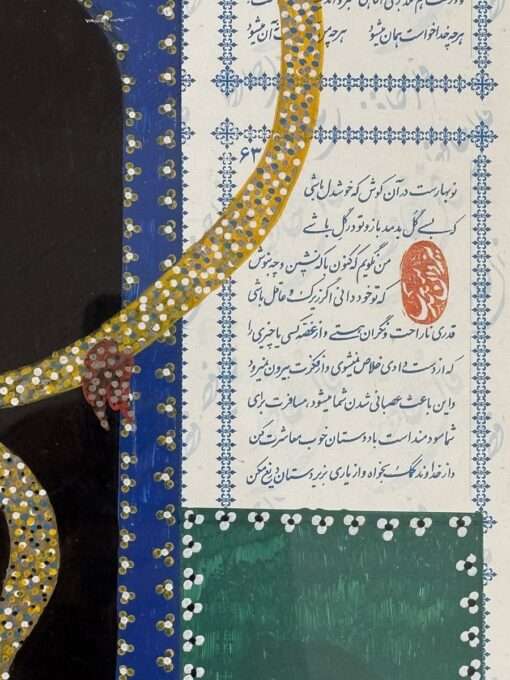 هرچه خدا خواست همان میشود هرچه آن شود
۶۳
نوبهارست در آن کوش که خوشدل باشی
که بسی گل بدمد باز و تو در گل باشی
من نگویم که کنون با که نشین و چه بنوش
که تو خود دانی اگر زیرک و عاقل باشی
قدری ناراحت و نگران هستی و از غصه کسی یا چیزی را
که از دست دادی خلاص نمیشوی و از فکرت بیرون نمیرود
و این باعث عصبانی شدن شما میشود. مسافرت برای
شما سودمند است با دوستان خوب معاشرت کن
و از خداوند کمک بخواه و از یاری زیردستان دریغ مکن